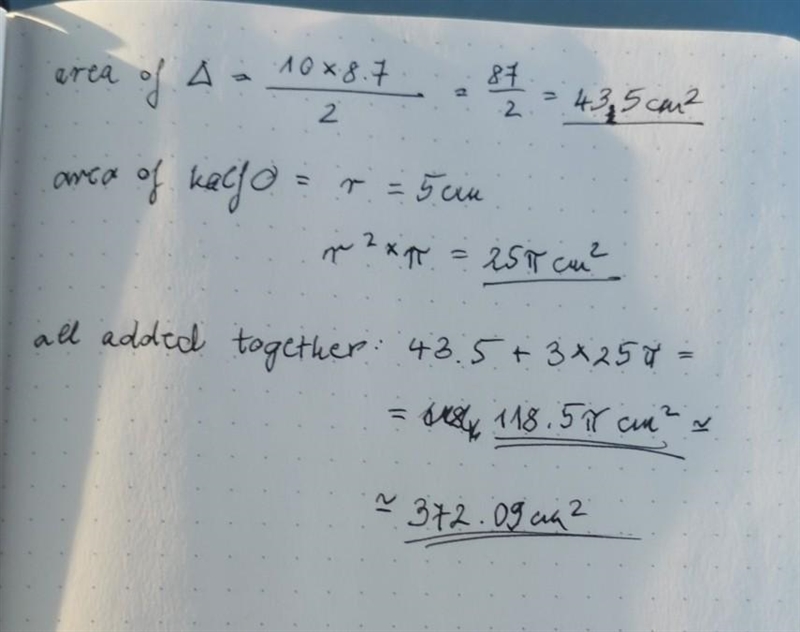 area of Δ = 10 × 8.7 / 2 = 87 / 2 = 43,5 cm²
area of half O = r = 5 cm
r² × π = 25π cm²
all added together: 43.5 + 3 × 25π =
= 118.5π cm² ≃
≃ 372.09 cm²